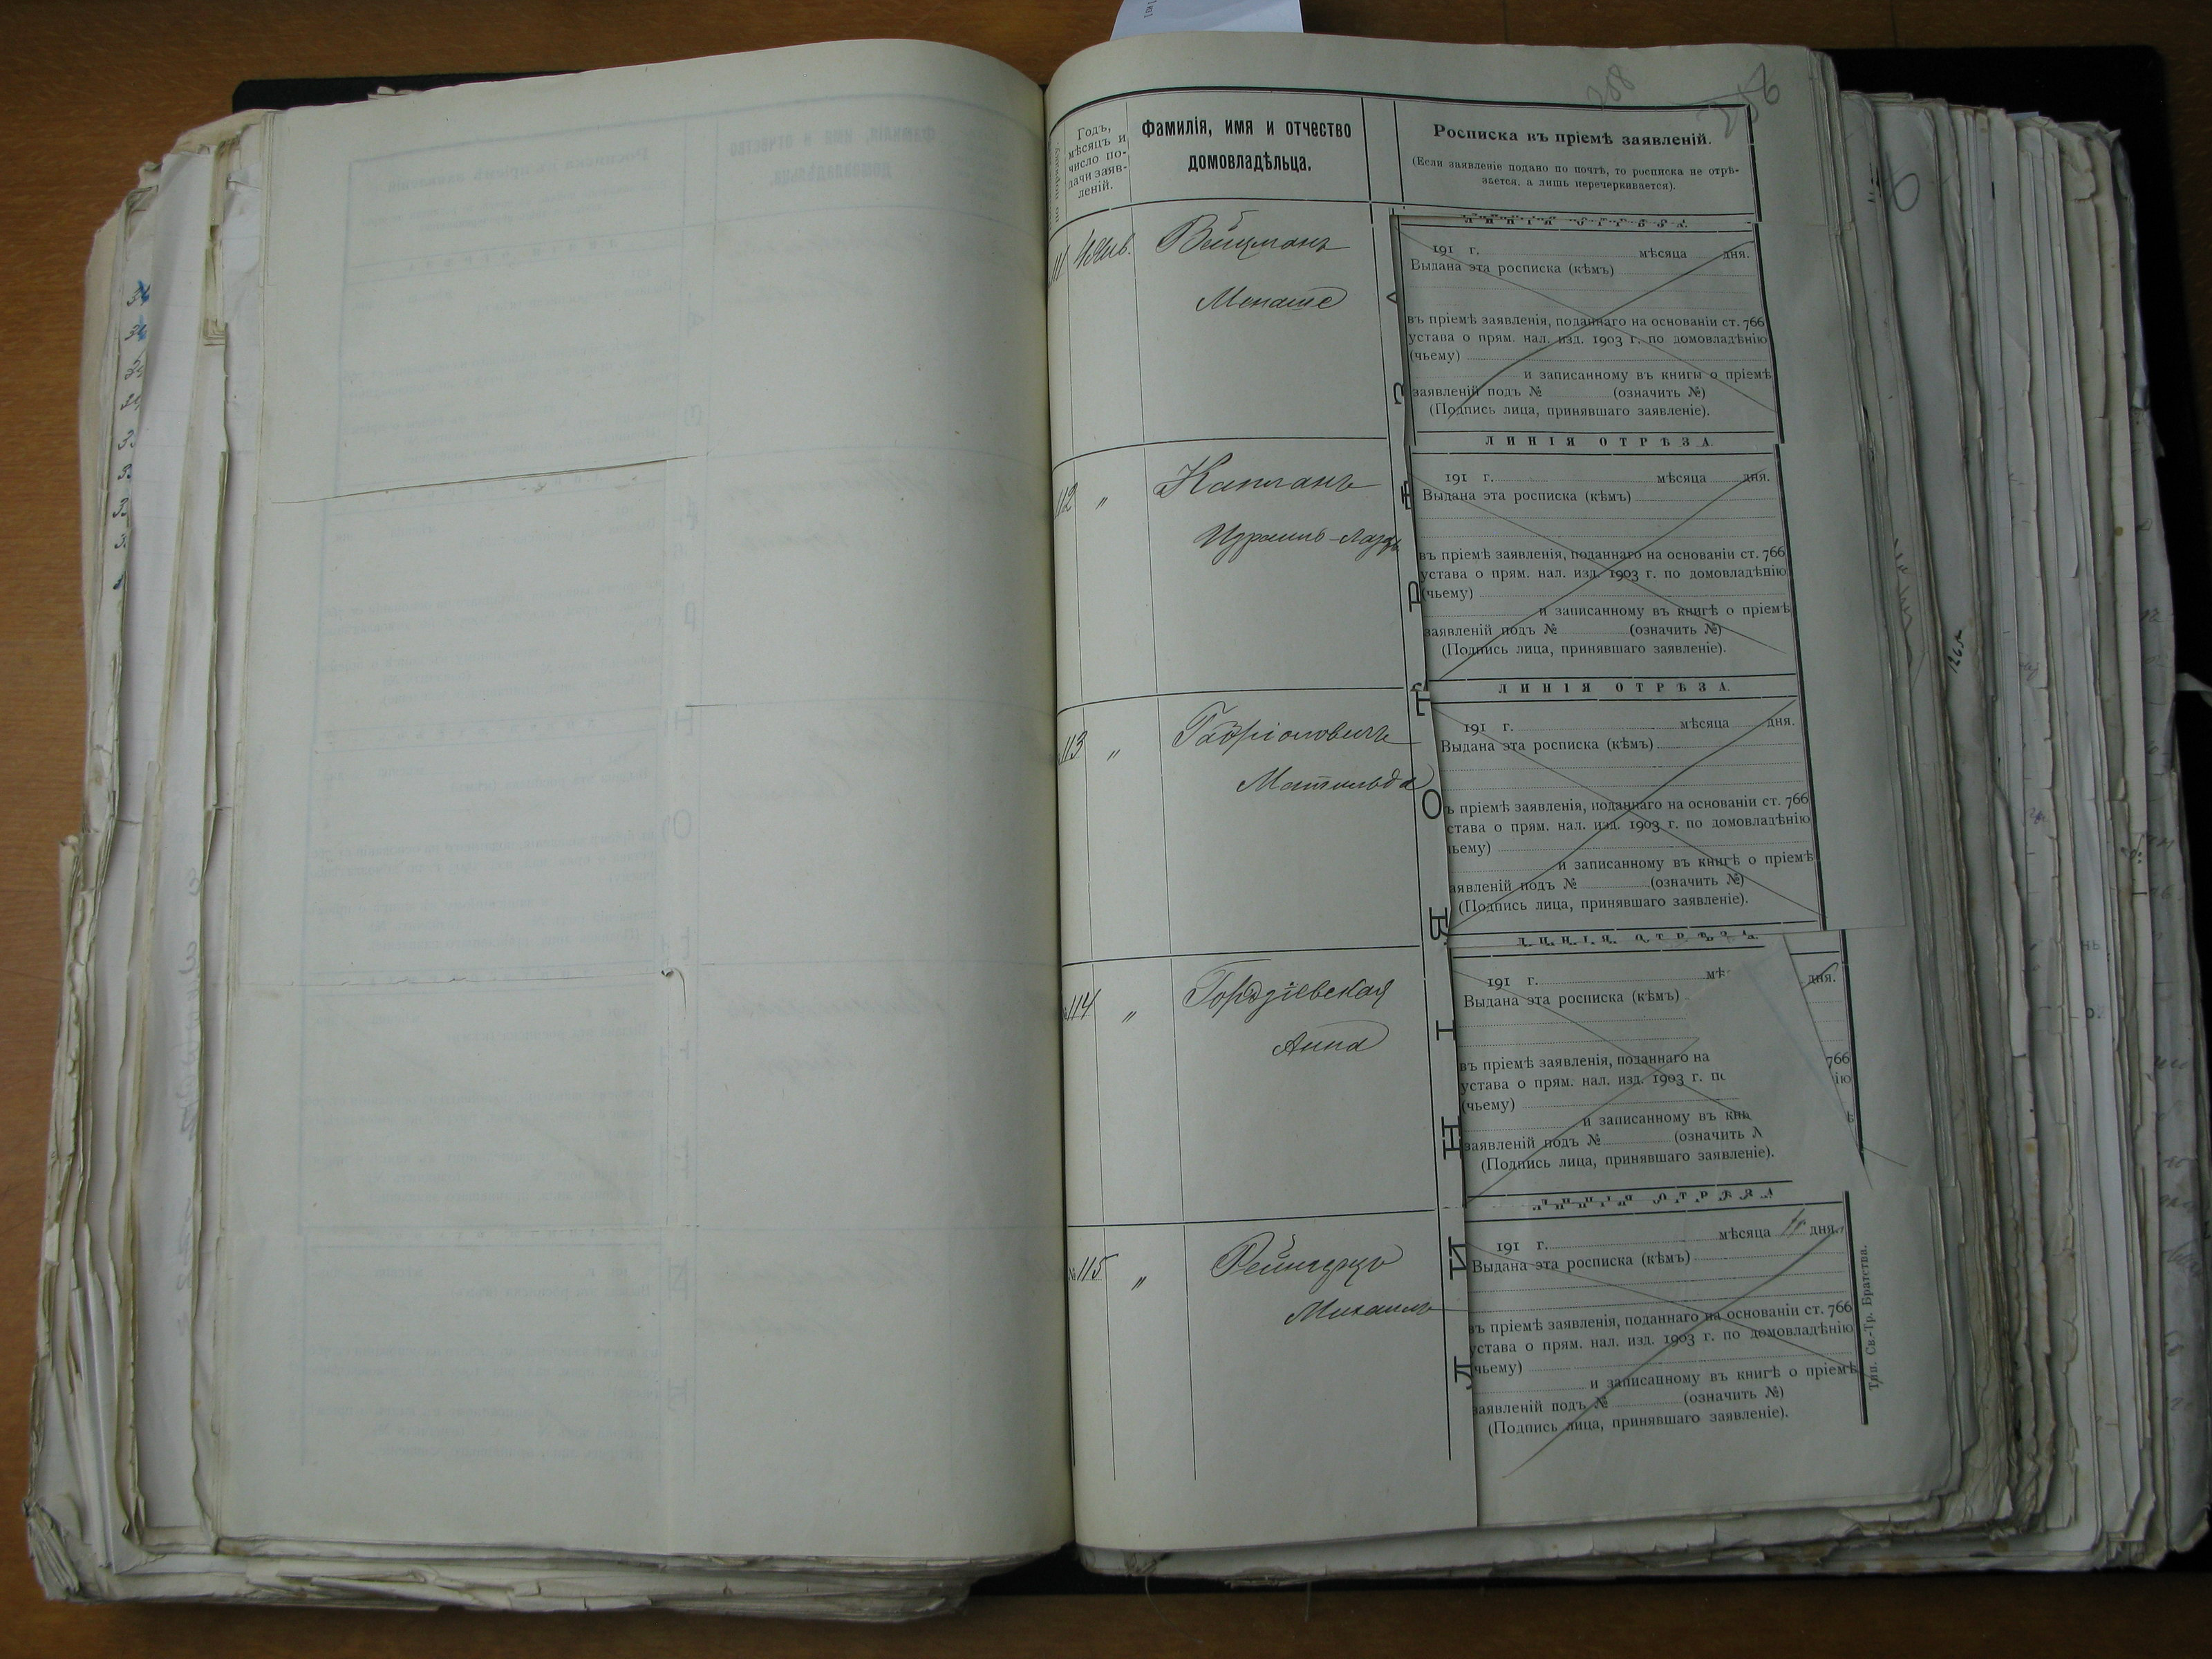 288
Годъ,
мѣсяцъ и
число по-
дачи заяв-
леній.
Фамилія, имя и отчество
домовладѣльца.
Росписка къ пріемѣ заявленій.
(Если заявленіе подано по почтѣ, то росписка не отрѣ-
зается, а лишь перечеркивается).
ЛИНІЯ ОТРѢЗА
111 4 Янв. Вейцманъ
Менаше
191 г. мѣсяца дня.
Выдана эта росписка (кѣмъ)
въ пріемѣ заявленія, поданнаго на основаніи ст. 766
устава о прям. нал. изд. 1903 г. по домовладѣнію
(чьему)
и записанному въ книгы о пріемѣ
заявленій подъ № (означить №)
(Подпись лица, принявшаго заявленіе).
ЛИНІЯ ОТРѢЗА
112 " Капланъ
Израиль-Лазарь
191 г. мѣсяца дня.
Выдана эта росписка (кѣмъ)
въ пріемѣ заявленія, поданнаго на основаніи ст. 766
устава о прям. нал. изд. 1903 г. по домовладѣнію
(чьему)
и записанному въ книгѣ о пріемѣ
заявленій подъ № (означить №)
(Подпись лица, принявшаго заявленіе).
ЛИНІЯ ОТРѢЗА.
113 " Габріоловичъ
Матильда
191 г. мѣсяца дня.
Выдана эта росписка (кѣмъ)
ъ пріемѣ заявленія, поданнаго на основаніи ст. 766
става о прям. нал. изд. 1903 г. по домовладѣнію
ьему)
и записанному въ книгѣ о пріемѣ
аявленій подъ № (означить №)
(Подпись лица, принявшаго заявленіе).
ЛИНІЯ ОТРѢЗА
114 " Гордзіевская
Анна
191 г. мѣ дня.
Выдана эта росписка (кѣмъ)
въ пріемѣ заявленія, поданнаго на 766
устава о прям. нал. изд. 1903 г. по ію
(чьему)
и записанному въ кни ѣ
заявленій подъ № (означить
(Подпись лица, принявшаго заявленіе).
ЛИНІЯ ОТРѢЗА
№ 115 "
Михаилъ
191 г. мѣсяца дня.
Выдана эта росписка (кѣмъ)
въ пріемѣ заявленія, поданнаго на основаніи ст. 766
устава о прям. нал. изд. 1903 г. по домовладѣнію
чьему)
и записанному въ книгѣ о пріемѣ
заявленій подъ № (означить №)
(Подпись лица, принявшаго заявленіе).
ЛИНІЯ ОТРѢЗА
Тип. Св.-Тр. Братства.